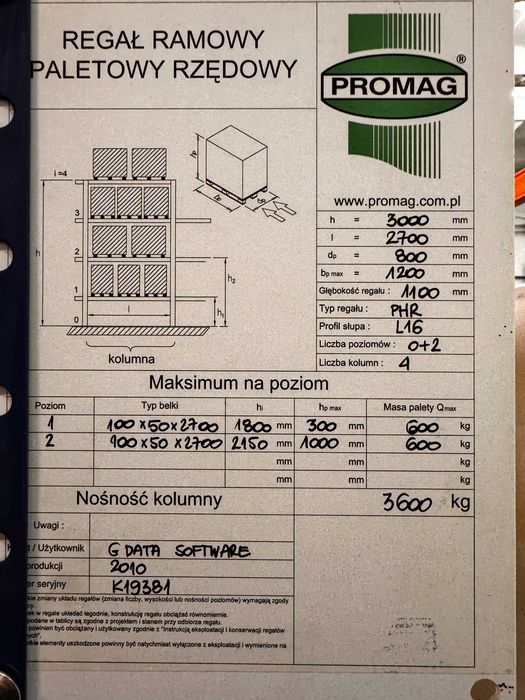 REGAŁ RAMOWY
PALETOWY RZĘDOWY
PROMAG®
www.promag.com.pl
i =4
3
2
1
0
h
l
h₂
h₁
hp
bp
dp
kolumna
h = 3000 mm
l = 2700 mm
dp = 800 mm
bp max = 1200 mm
Głębokość regału : 1100 mm
Typ regału : PHR
Profil słupa : L16
Liczba poziomów : 0+2
Liczba kolumn : 4
Maksimum na poziom
Poziom Typ belki hi hp max Masa palety Qmax
1 100x50x2700 1800 mm 300 mm 600 kg
2 100x50x2700 2150 mm 1000 mm 600 kg
mm mm kg
mm mm kg
Nośność kolumny 3600 kg
Uwagi :
t / Użytkownik G DATA SOFTWARE
produkcji 2010
er seryjny K19381
kie zmiany układu regałów (zmiana liczby, wysokości lub nośności poziomów) wymagają zgody
cy.
ek w regale układać łagodnie, konstrukcję regału obciążać równomiernie.
podane w tablicy są zgodne z projektem i stanem przy odbiorze regału.
powinien być obciążany i użytkowany zgodnie z "Instrukcją eksploatacji i konserwacji regałów
ych".
elkie elementy uszkodzone powinny być natychmiast wyłączone z eksploatacji i wymienione na